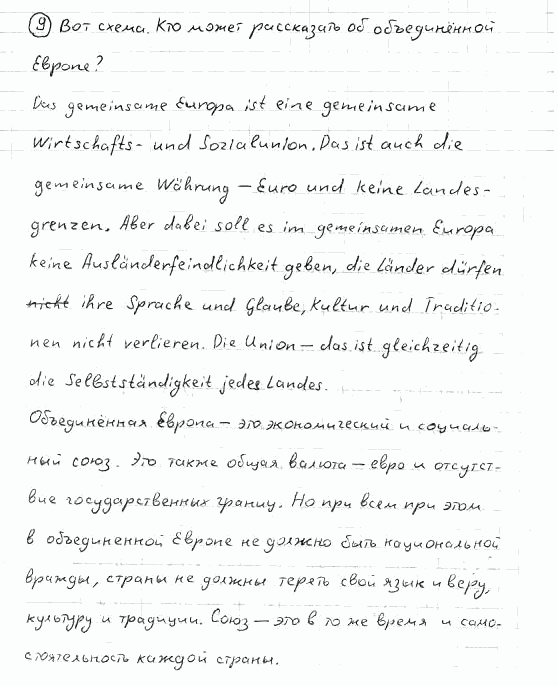 ⑨ Вот схема. Кто может рассказать об объединённой
Европе?
Das gemeinsame Europa ist eine gemeinsame
Wirtschafts- und Sozialunion. Das ist auch die
gemeinsame Währung – Euro und keine Landes-
grenzen. Aber dabei soll es im gemeinsamen Europa
keine Ausländerfeindlichkeit geben, die Länder dürfen
nicht ihre Sprache und Glaube, Kultur und Traditio-
nen nicht verlieren. Die Union – das ist gleichzeitig
die Selbstständigkeit jedes Landes.
Объединённая Европа – это экономический и социаль-
ный союз. Это также общая валюта – евро и отсутст-
вие государственных границ. Но при всем при этом
в объединенной Европе не должно быть национальной
вражды, страны не должны терять свой язык и веру,
культуру и традиции. Союз – это в то же время и само-
стоятельность каждой страны.